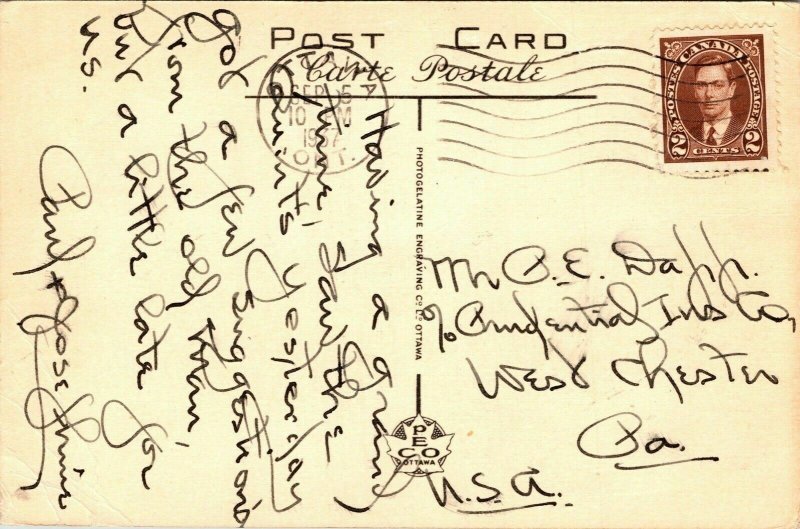 POST CARD
Carte Postale
SEP 15
10 PM
1937
ONT.
POSTES CANADA POSTAGE
2 CENTS 2
Having a grand
time, saw the
Quints yesterday
Got a few suggestions
from the old man,
but a little late for
us.
Paul & Josephine
PHOTOGELATINE ENGRAVING Co. LTD. OTTAWA
PECO
OTTAWA
Mr P. E. Dapp.
% Prudential Ins Co,
West Chester
Pa.
U.S.A.